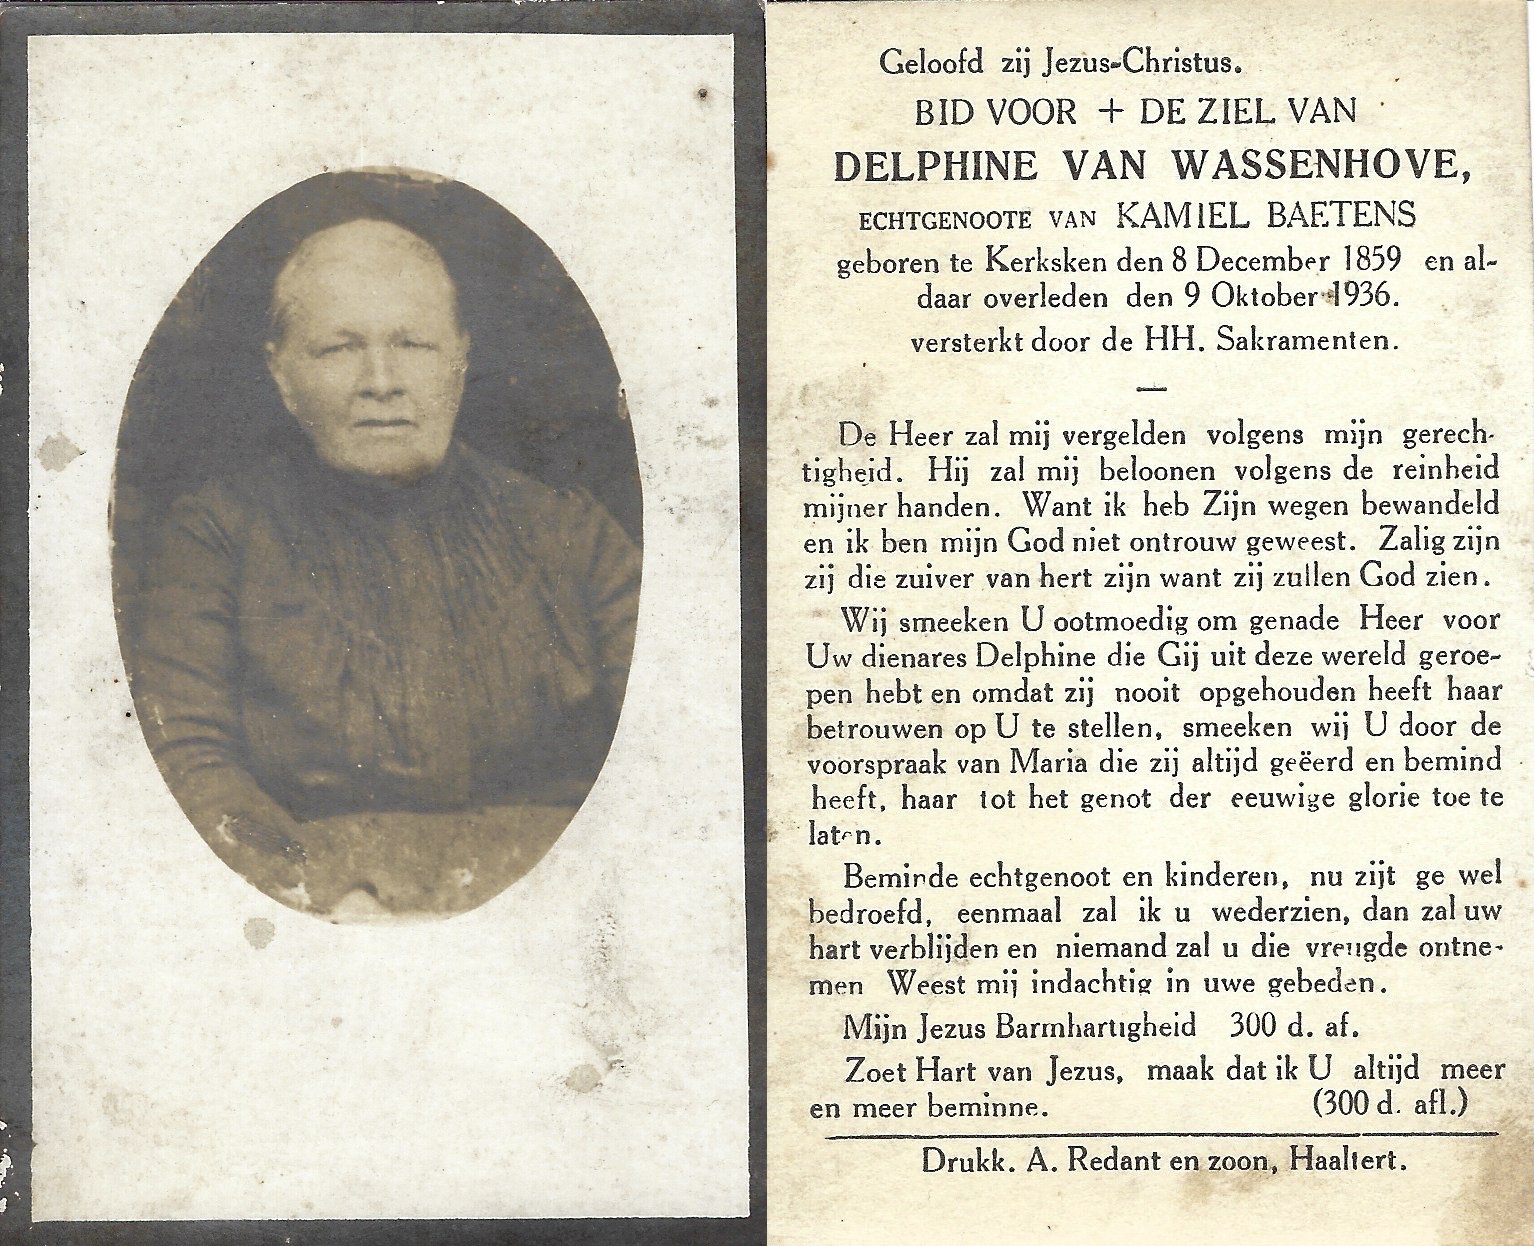 Geloofd zij Jezus-Christus.
BID VOOR + DE ZIEL VAN
DELPHINE VAN WASSENHOVE,
ECHTGENOOTE VAN KAMIEL BAETENS
geboren te Kerksken den 8 December 1859 en al-
daar overleden den 9 Oktober 1936.
versterkt door de HH. Sakramenten.
—
De Heer zal mij vergelden volgens mijn gerech-
tigheid. Hij zal mij beloonen volgens de reinheid
mijner handen. Want ik heb Zijn wegen bewandeld
en ik ben mijn God niet ontrouw geweest. Zalig zijn
zij die zuiver van hert zijn want zij zullen God zien.
Wij smeeken U ootmoedig om genade Heer voor
Uw dienares Delphine die Gij uit deze wereld geroe-
pen hebt en omdat zij nooit opgehouden heeft haar
betrouwen op U te stellen, smeeken wij U door de
voorspraak van Maria die zij altijd geëerd en bemind
heeft, haar tot het genot der eeuwige glorie toe te
laten.
Beminde echtgenoot en kinderen, nu zijt ge wel
bedroefd, eenmaal zal ik u wederzien, dan zal uw
hart verblijden en niemand zal u die vreugde ontne-
men Weest mij indachtig in uwe gebeden.
Mijn Jezus Barmhartigheid 300 d. af.
Zoet Hart van Jezus, maak dat ik U altijd meer
en meer beminne. (300 d. afl.)
Drukk. A. Redant en zoon, Haaltert.